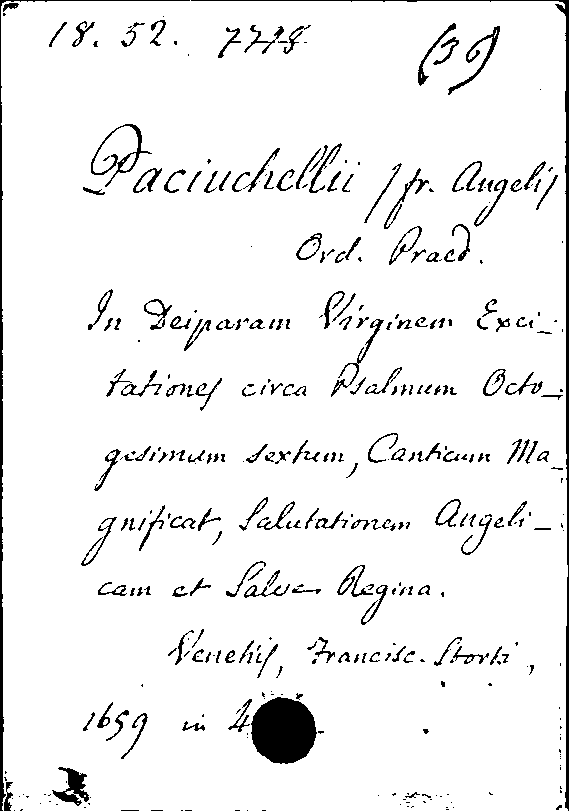 18. 52. 7718 (36)
Paciuchellii /fr. Angeli/
Ord. Praed.
In Deiparam Virginem Exci-
tationes circa Psalmum Octo-
gesimum sextum, Canticum Ma-
gnificat, Salutationem Angeli-
cam et Salve Regina.
Venetiis, Francisc. Storti,
1659 in 4